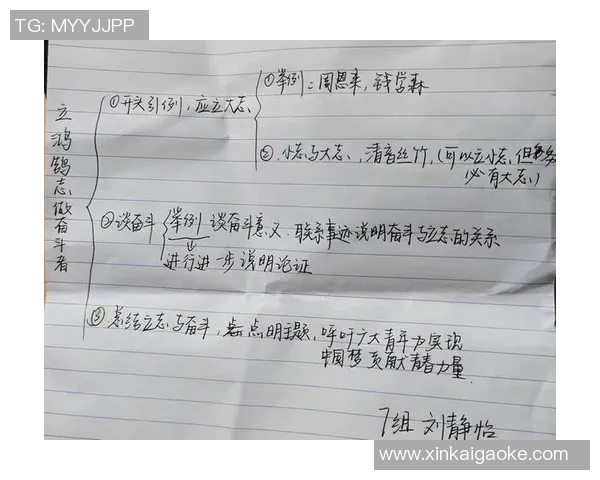 TG: MYYJJPP
立鸿鹄志,做奋斗者
①开头引例,应立大志
①举例:周恩来,钱学森
②.小志与大志,清音丝竹,(可以立小志,但
必有大志)
②谈奋斗
举例 谈奋斗意义.联系事迹说明奋斗与立志的关系
进行进一步说明论证
③总结立志与奋斗,点明主题,呼吁广大青年为实现
中国梦贡献青春力量.
7组 刘静怡
www.xinkaigaoke.com